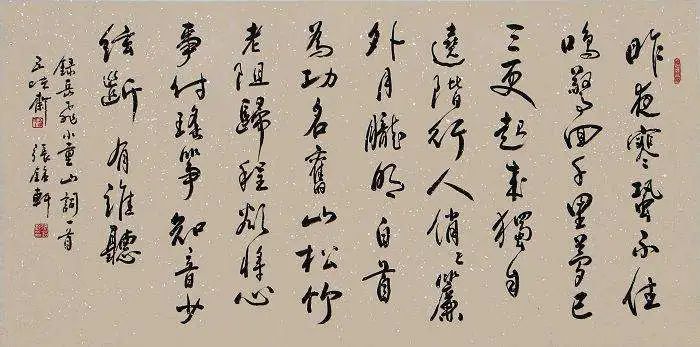 昨夜寒蛩不住
鳴驚回千里夢已
三更起来獨自
遶階行人悄々簾
外月朧明白首
為功名舊山松竹
老阻歸程欲將心
事付瑤筝知音少
絃斷有誰聽
錄岳飛小重山詞一首
張軒